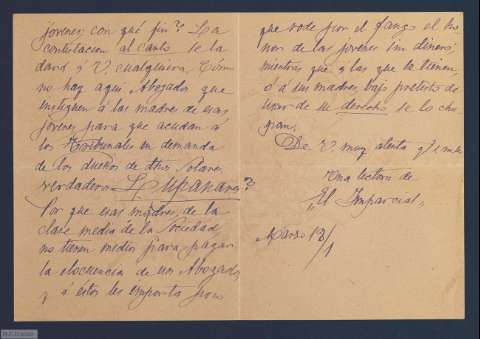 jovenes; con qué fin? La
contestacion al canto se la
dará á V. cualquiera. Cómo
no hay aqui Abogados que
instiguen á las madres de esas
jovenes para que acudan á
los Tribunales en demanda
de los dueños de dhos Solares,
verdaderos Lupanares?
Por que esas madres, de la
clase media de la Sociedad,
no tienen medios para pagar
la elocuencia de un Abogado,
y á estos les importa poco
que rode por el fango el ho
nor de las jovenes sin dinero;
mientras que á las que le tienen,
ó á sus madres, bajo pretesto de
usar de su derecho se lo chu
pan.
De V. muy atenta q. s. m. b.
Una lectora de
"El Imparcial"
Marzo 13/1